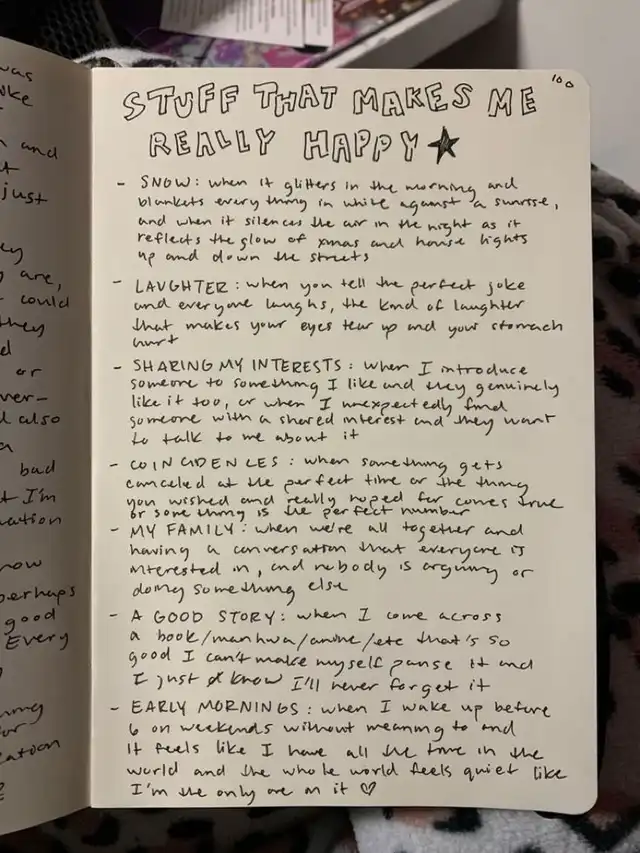 was
and
just
they
are,
could
they
or
also
a
bad
I'm
now
perhaps
good
Every
100
STUFF THAT MAKES ME
REALLY HAPPY ★
- SNOW: when it glitters in the morning and
blankets everything in white against a sunrise,
and when it silences the air in the night as it
reflects the glow of xmas and house lights
up and down the streets
- LAUGHTER: when you tell the perfect joke
and everyone laughs, the kind of laughter
that makes your eyes tear up and your stomach
hurt
- SHARING MY INTERESTS: when I introduce
someone to something I like and they genuinely
like it too, or when I unexpectedly find
someone with a shared interest and they want
to talk to me about it
- COINCIDENCES: when something gets
canceled at the perfect time or the thing
you wished and really hoped for comes true
or something is the perfect number
- MY FAMILY: when we're all together and
having a conversation that everyone is
interested in, and nobody is arguing or
doing something else
- A GOOD STORY: when I come across
a book/manhwa/anime/etc that's so
good I can't make myself pause it and
I just know I'll never forget it
- EARLY MORNINGS: when I wake up before
6 on weekends without meaning to and
it feels like I have all the time in the
world and the whole world feels quiet like
I'm the only one on it ♡